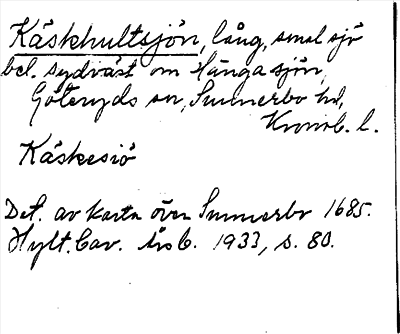 Käskhultsjön, lång, smal sjö
bel. sydväst om Hängasjön,
Göteryds sn, Sunnerbo hd,
Kronob. l.
Käskesiö
Det. av karta över Sunnerbo 1685.
Hylt. Cav. Årsb. 1933, s. 80.